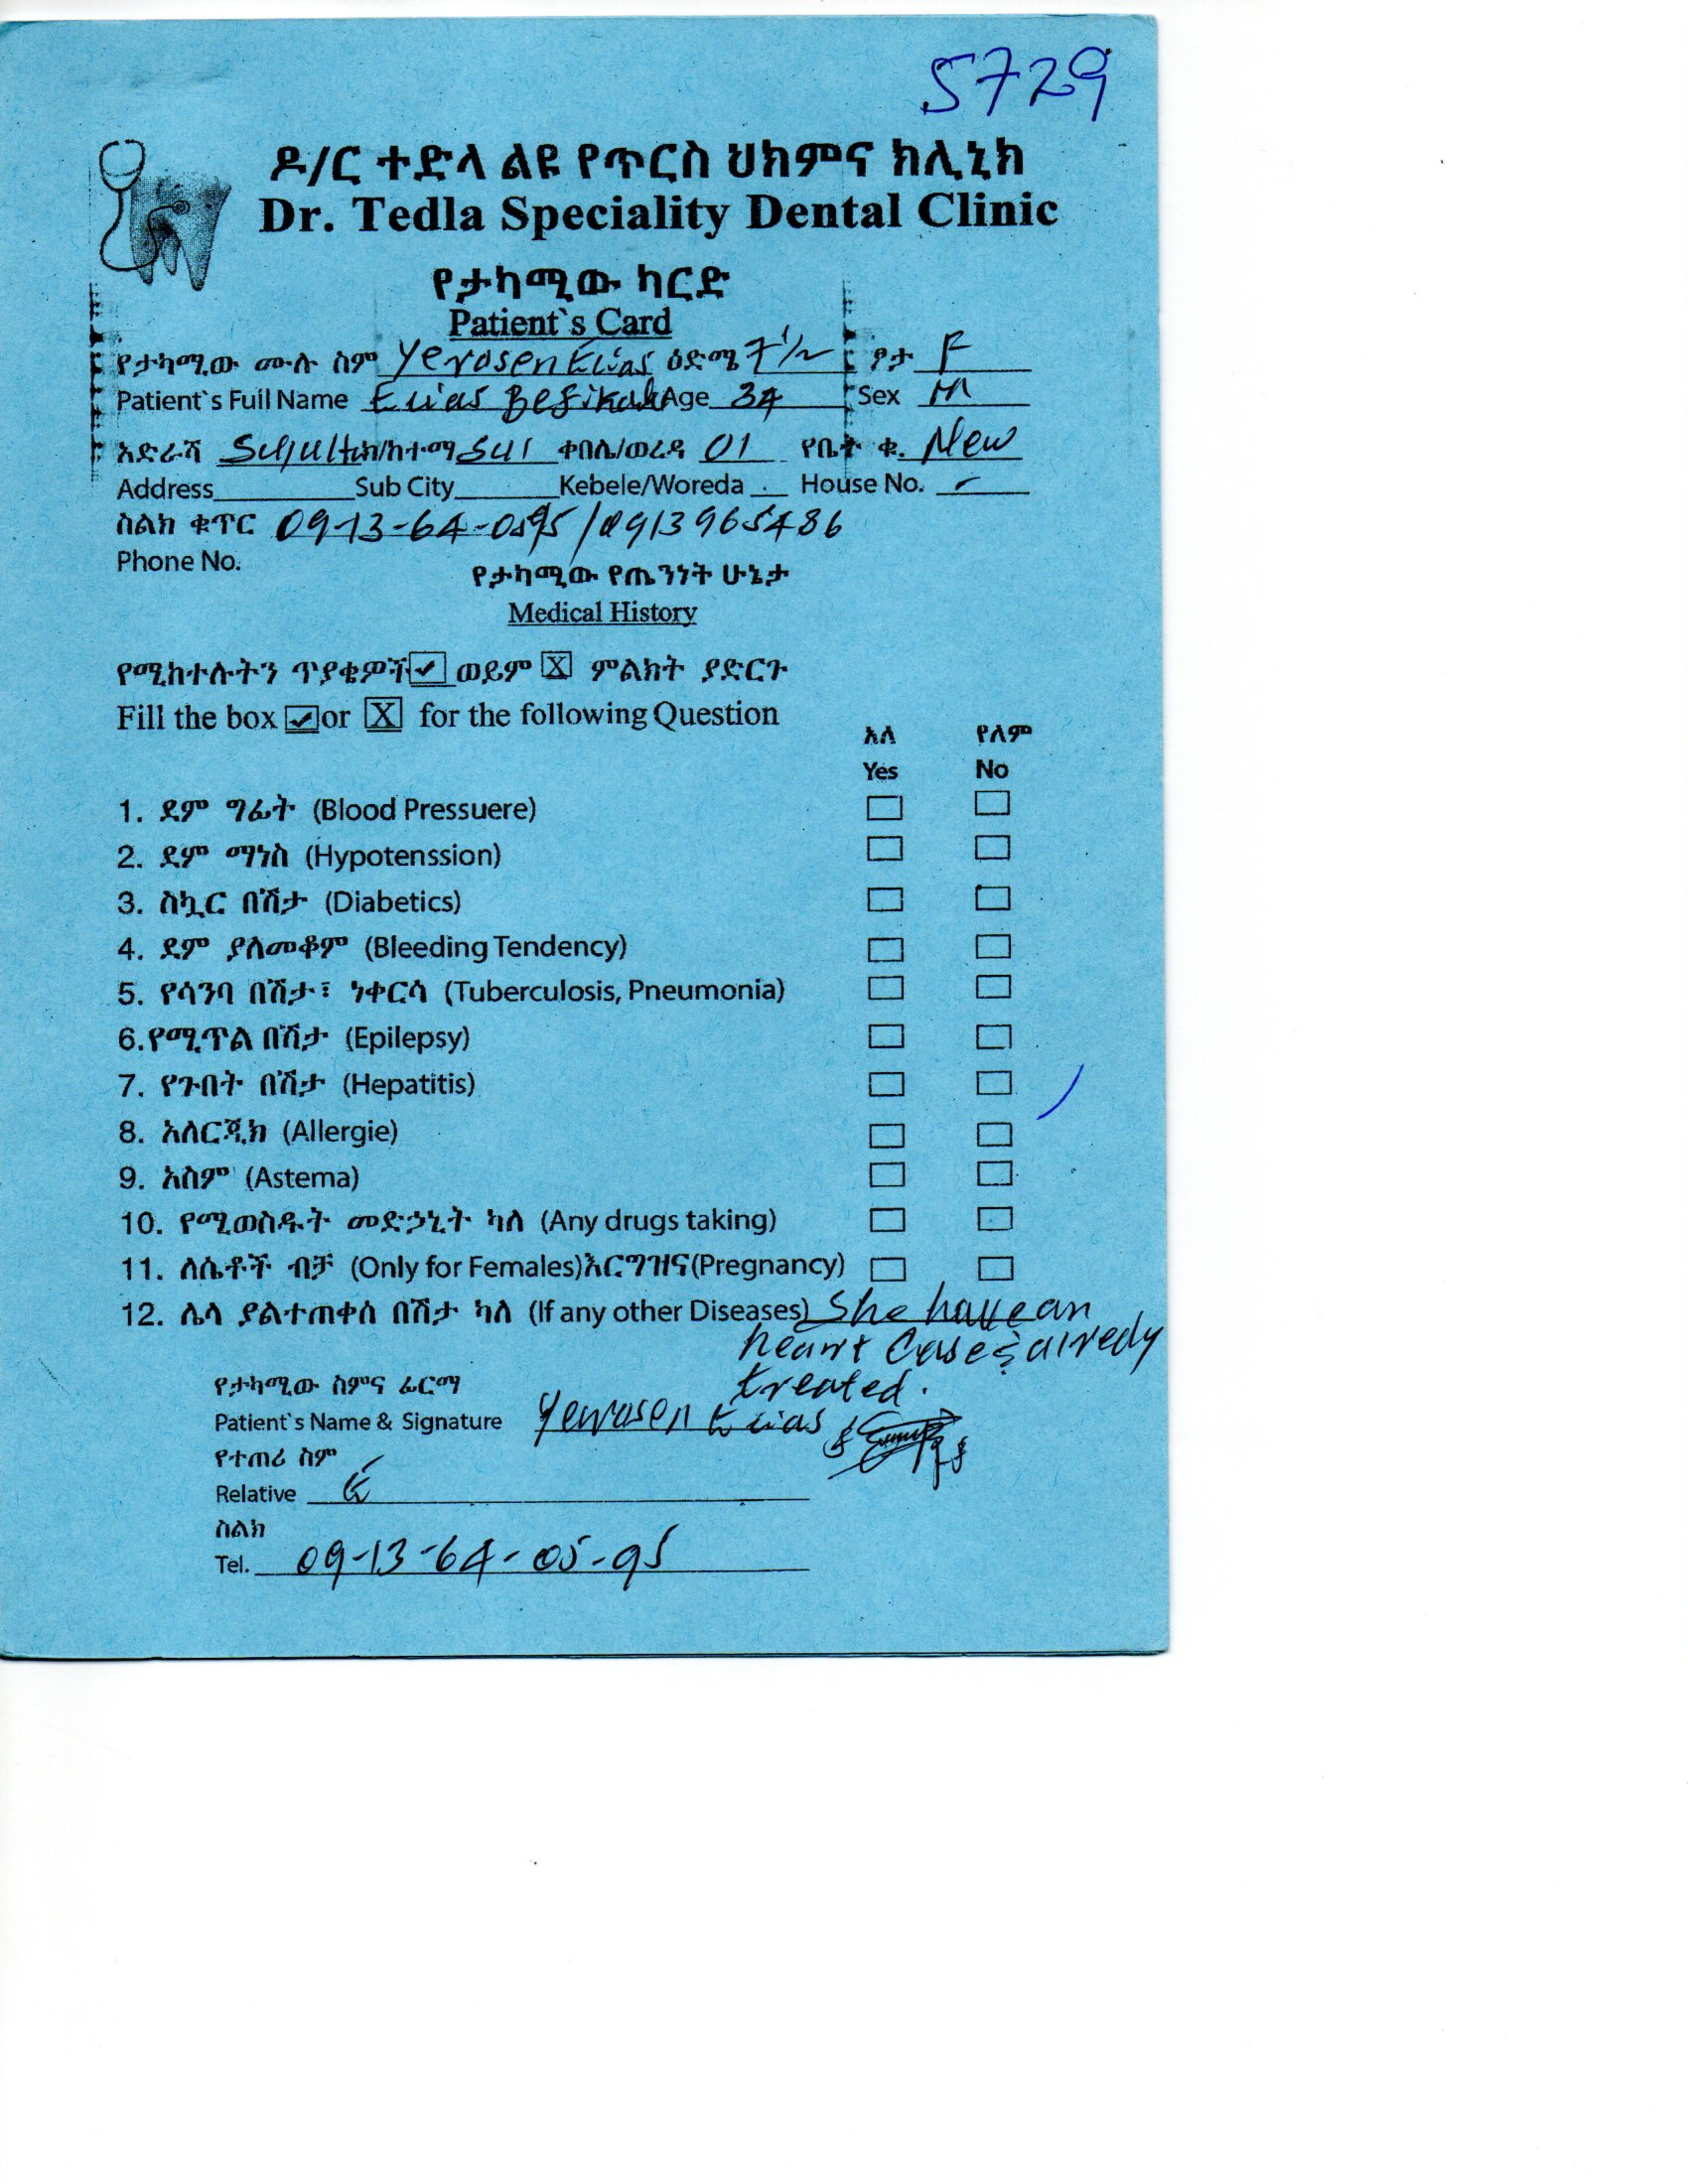 5729
ዶ/ር ተድላ ልዩ የጥርስ ህክምና ክሊኒክ
Dr. Tedla Speciality Dental Clinic
የታካሚው ካርድ
Patient`s Card
የታካሚው ሙሉ ስም Yerosen Elias ዕድሜ 7 1/2 ፆታ F
Patient`s Full Name Elias Age 34 Sex M
አድራሻ ክ/ከተማ Sul ቀበሌ/ወረዳ 01 የቤት ቁ. New
Address Sub City Kebele/Woreda House No. -
ስልክ ቁጥር 09-13-64-0595 / 0913965486
Phone No.
የታካሚው የጤንነት ሁኔታ
Medical History
የሚከተሉትን ጥያቄዎች ✓ ወይም X ምልክት ያድርጉ
Fill the box ✓ or X for the following Question
አለ የለም
Yes No
1. ደም ግፊት (Blood Pressuere)
2. ደም ማነስ (Hypotenssion)
3. ስኳር በሽታ (Diabetics)
4. ደም ያለመቆም (Bleeding Tendency)
5. የሳንባ በሽታ፣ ነቀርሳ (Tuberculosis, Pneumonia)
6.የሚጥል በሽታ (Epilepsy)
7. የጉበት በሽታ (Hepatitis)
8. አለርጂክ (Allergie)
9. አስም (Astema)
10. የሚወስዱት መድኃኒት ካለ (Any drugs taking)
11. ለሴቶች ብቻ (Only for Females)እርግዝና(Pregnancy)
12. ሌላ ያልተጠቀሰ በሽታ ካለ (If any other Diseases) She have an
heart Case & alredy
treated.
የታካሚው ስምና ፊርማ
Patient`s Name & Signature Yerosen Elias
የተጠሪ ስም
Relative E
ስልክ
Tel. 09-13-64-05-95